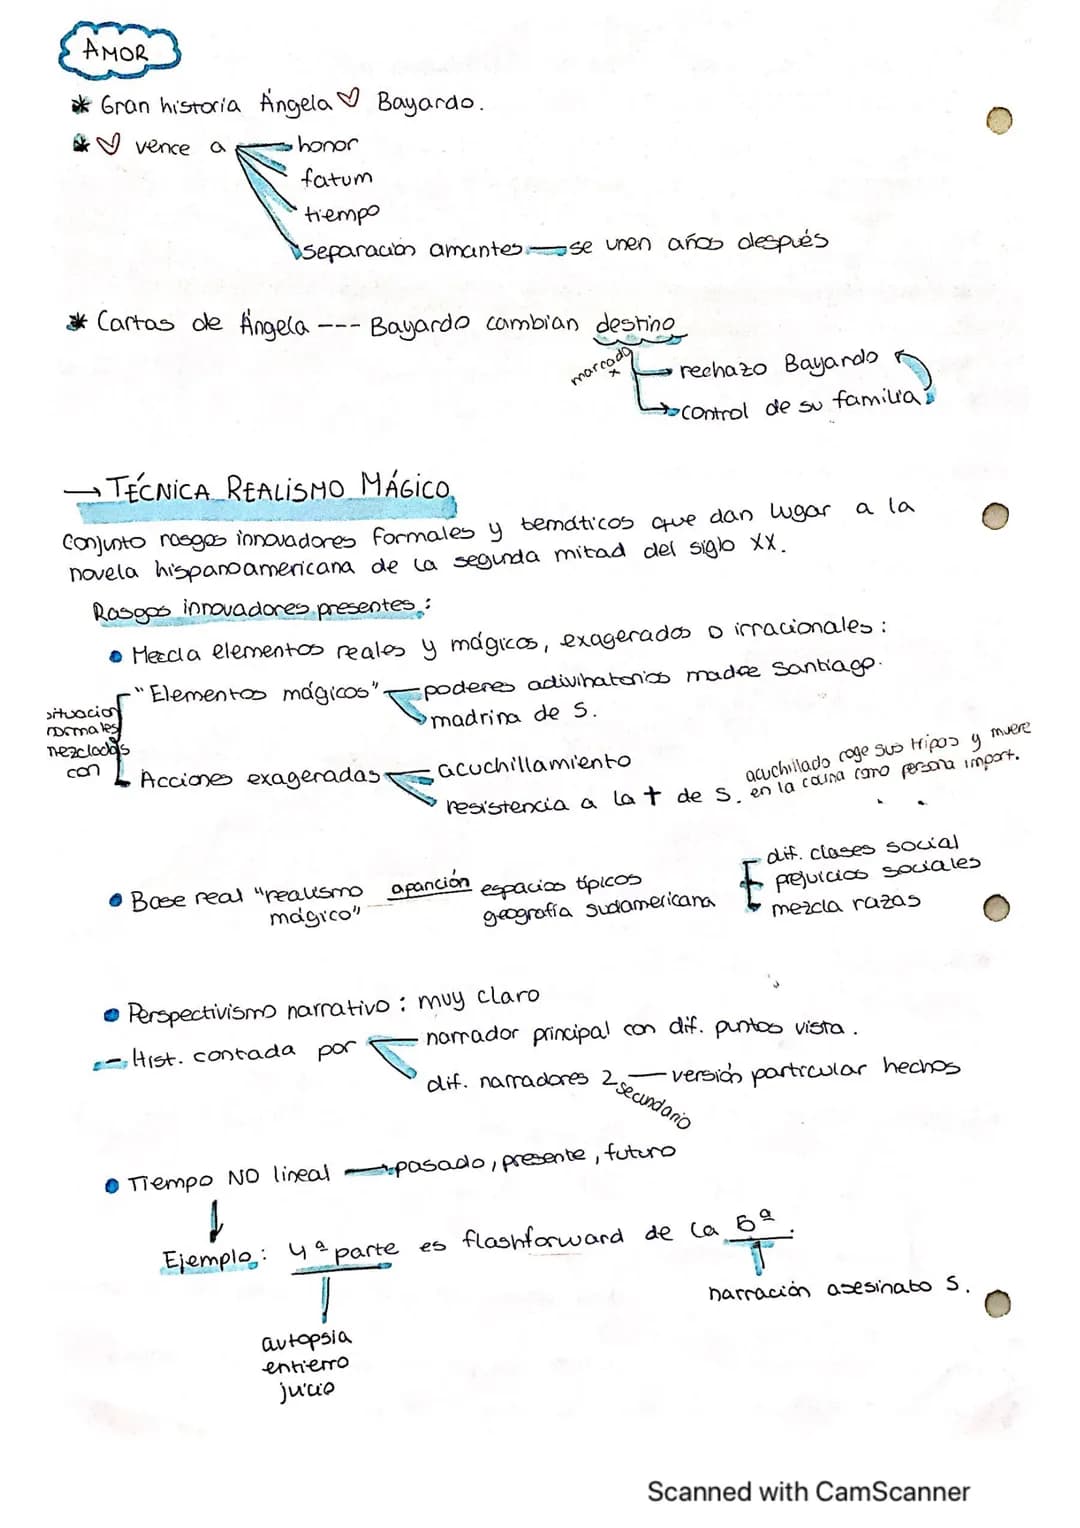 AMOR
* Gran historia Ángela ♡ Bayardo.
* ♡ vence a honor
fatum
tiempo
separación amantes — se unen años después
* Cartas de Ángela --- Bayardo cambian destino
marcado x
rechazo Bayardo
control de su familia
→ TÉCNICA REALISMO MÁGICO
Conjunto rasgos innovadores formales y temáticos que dan lugar a la
novela hispanoamericana de la segunda mitad del siglo XX.
Rasgos innovadores presentes:
• Mezcla elementos reales y mágicos, exagerados o irracionales:
situacion
normales
mezclados
con
"Elementos mágicos" poderes adivinatorios madre Santiago.
madrina de S.
Acciones exageradas acuchillamiento
resistencia a la † de S.
acuchillado coge sus tripas y muere
en la cocina como persona import.
• Base real "realismo mágico" aparición espacios típicos
geografía sudamericana
dif. clases social
prejuicios sociales
mezcla razas
• Perspectivismo narrativo: muy claro
- Hist. contada por narrador principal con dif. puntos vista.
dif. narradores 2 secundario — versión particular hechos
• Tiempo NO lineal → pasado, presente, futuro
↓
Ejemplo: 4ª parte es flashforward de la 5ª.
narración asesinato S.
autopsia
entierro
juicio
Scanned with CamScanner